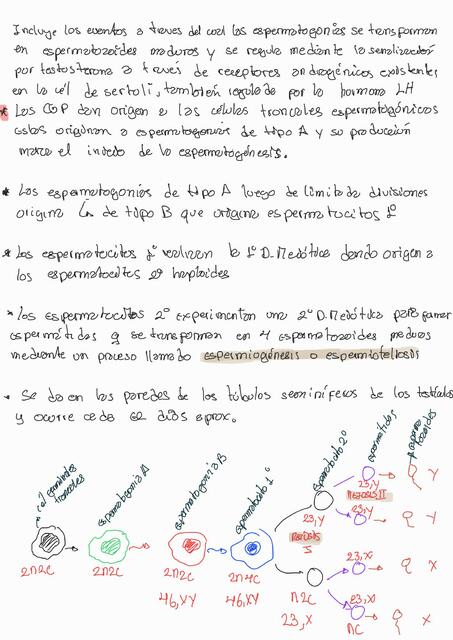 Incluye los eventos a traves del cual las espermatogonias se transforman
en espermatozoides maduros y se regula mediante la senalización
por testosterona a través de receptores androgénicos existentes
en la cél de sertoli, también regulado por la hormona LH
* Las CGP dan origen a las células troncales espermatogónicas
estas originan a espermatogonias de tipo A y su producción
marca el inicio de la espermatogénesis.
* Las espermatogonias de tipo A luego de limitada divisiones
origina la de tipo B que origina espermatocitos 1°
* Los espermatocitos 1° realizan la 1° D. Meiótica dando origen a
los espermatocitos 2° haploides
* Los espermatocitos 2° experimentan una 2° D. Meiótica para formar
espermátidas q se transforman en 4 espermatozoides maduros
mediante un proceso llamado espermiogénesis o espermioteliosis
• Se da en las paredes de los túbulos seminíferos de los testículos
y ocurre cada 62 días aprox.
cél germinales
troncales
espermatogonia A
espermatogonia B
espermatocito 1°
espermatocito 2°
espermátidas
2n2C
2n2C
2n2C
46,XY
2n4C
46,XY
MEIOSIS
I
23,Y
n2C
23,X
23,Y
MEIOSIS II
23,Y
23,X
23,X
nC
Y
Y
X
X